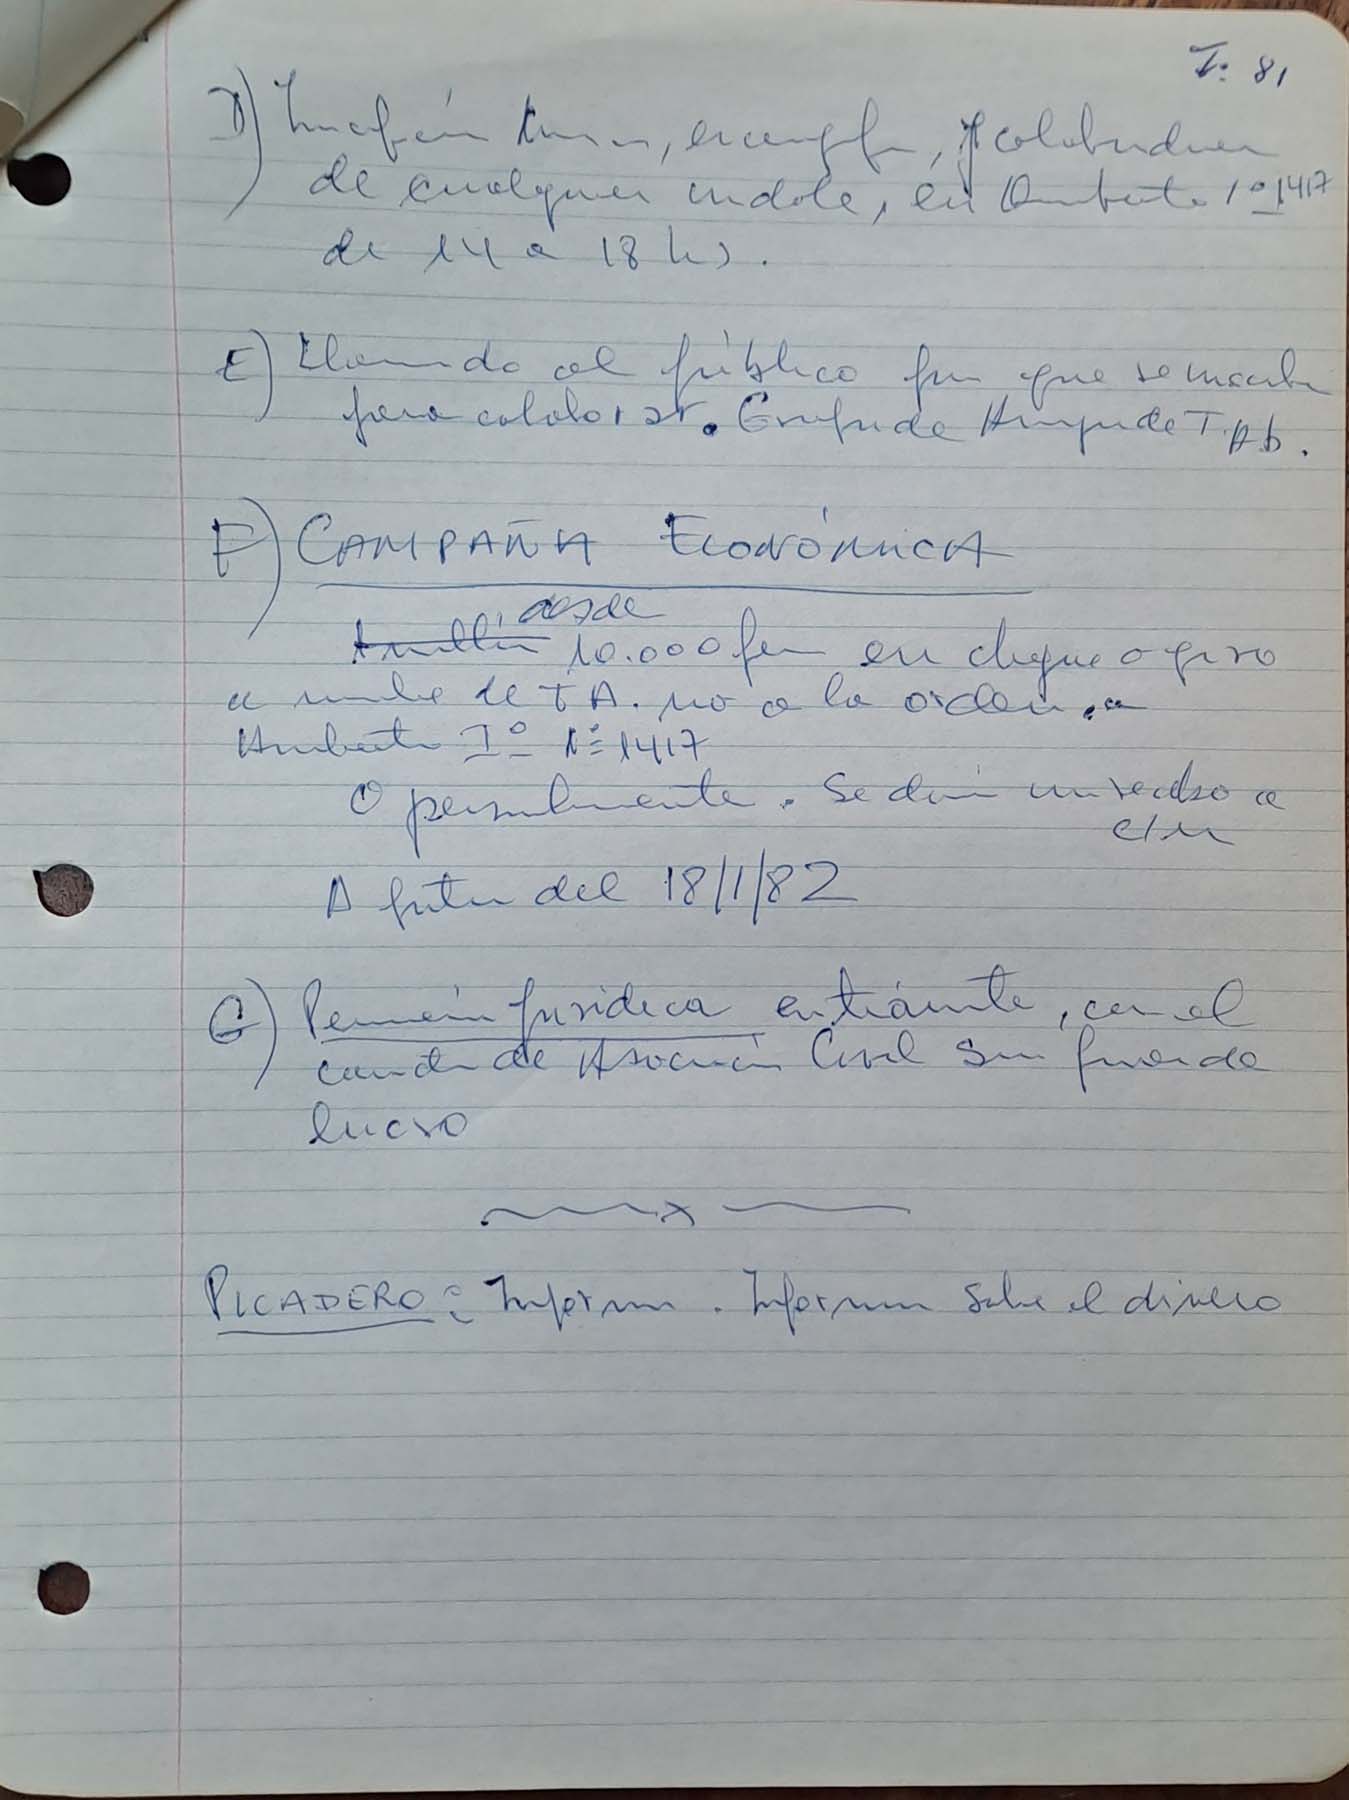 I: 81
D) Inscripción , , y colaboradores
de cualquier indole, en Humberto 1º 1417
de 14 a 18 hs.
E) Llamado al público que se inscriba
para colaborar. Grupo de Amigos de T. Ab.
F) CAMPAÑA ECONÓMICA
desde
10.000 pesos en cheque o giro
a nombre de T A. no a la orden, a
Humberto Iº Nº 1417
O personalmente. Se dará un recibo a
c/u
A partir del 18/1/82
G) Personería Jurídica en trámite, con el
carácter de Asociación Civil sin fines de
lucro
x
PICADERO: Informe. Informe sobre el dinero